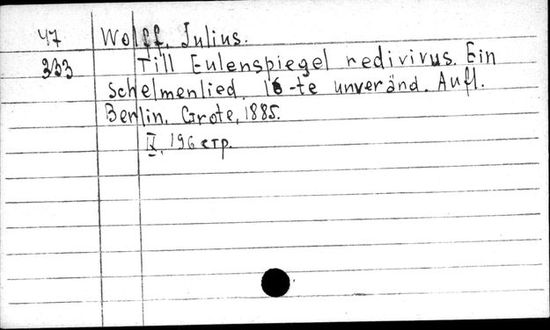 47 Wolff, Julius.
333 Till Eulenspiegel redivivus. Ein
schelmenlied. 16-te unveränd. Aufl.
Berlin. Grote, 1885.
IV, 196 стр.